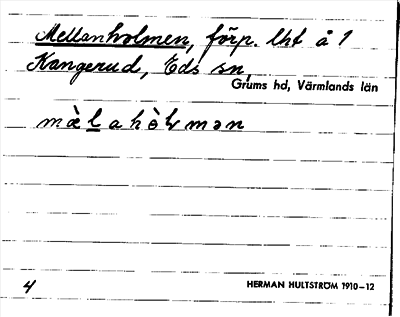 Mellanholmen, förp. lht å 1
Kangerud, Eds sn,
Grums hd, Värmlands län
mæ̀lahòlmən
4
HERMAN HULTSTRÖM 1910–12